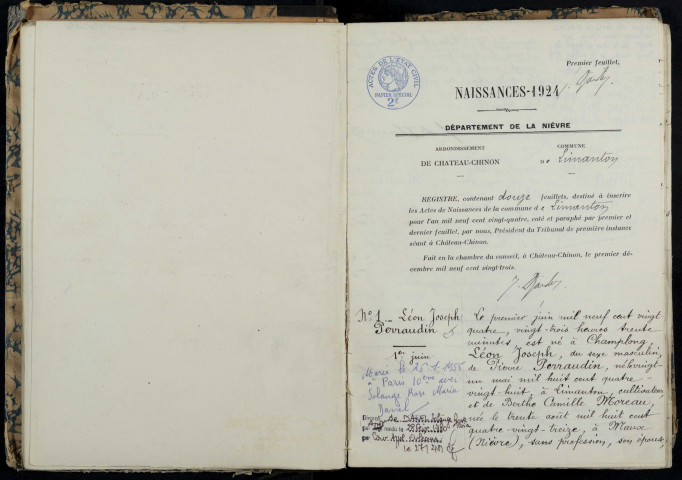 Premier feuillet,
ACTES DE L'ETAT CIVIL
PAPIER SPECIAL
2F
NAISSANCES-1924
DÉPARTEMENT DE LA NIÈVRE
ARRONDISSEMENT
DE CHATEAU-CHINON
COMMUNE
De Limanton
REGISTRE, contenant douze feuillets, destiné à inscrire
les Actes de Naissances de la commune de Limanton
pour l'an mil neuf cent vingt-quatre, coté et paraphé par premier et
dernier feuillet, par nous, Président du Tribunal de première instance
séant à Château-Chinon.
Fait en la chambre du conseil, à Château-Chinon, le premier dé-
cembre mil neuf cent vingt-trois.
No 1 - Léon Joseph
Perraudin
1er juin
Marié le 26
à Paris 10ème avec
Solange Rose Marie
Divorcé
par
par Cour Appel Orléans
le 27
Le premier juin mil neuf cent vingt
quatre, vingt-trois heures trente
minutes est né à Champlong,
Léon Joseph, du sexe masculin,
de Pierre Perraudin, né le vingt-
un mai mil huit cent quatre-
vingt-huit, à Limanton, cultivateur,
et de Berthe Camille Moreau,
née le trente août mil huit cent
quatre-vingt-treize, à Maux
(Nièvre), sans profession, son épouse,